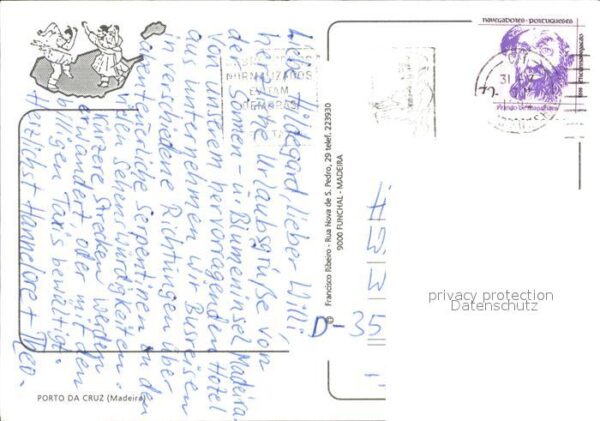 Liebe Hildegard, lieber Willi,
herzliche Urlaubsgrüße von
der Sonnen- u. Blumeninsel Madeira.
Von unserem hervorragenden Hotel
aus unternehmen wir Busreisen
in verschiedene Richtungen über
abenteuerliche Serpentinen zu den
vielen Sehenswürdigkeiten.
Kürzere Strecken werden
erwandert, oder mit den
billigen Taxis bewältigt.
Herzlichst Hannelore + Theo.
PORTO DA CRUZ (Madeira)
© Francisco Ribeiro - Rua Nova de S. Pedro, 29 telef. 223930
9000 FUNCHAL - MADEIRA
NORMALIZADOS
EVITAM
DEMORAS
NAVEGADORES PORTUGUESES
Fernão de Magalhães
31
D-35
privacy protection
Datenschutz